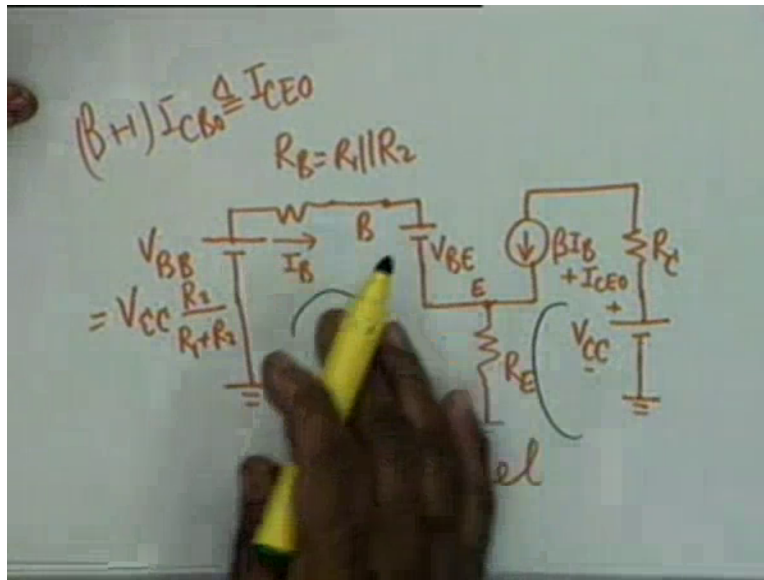 (β+1) I_CBO ≜ I_CEO
R_B = R_1 || R_2
V_BB
= V_CC R_2 / R_1+R_2
I_B
B
V_BE
E
R_E
βI_B
+ I_CEO
R_C
+
V_CC
el